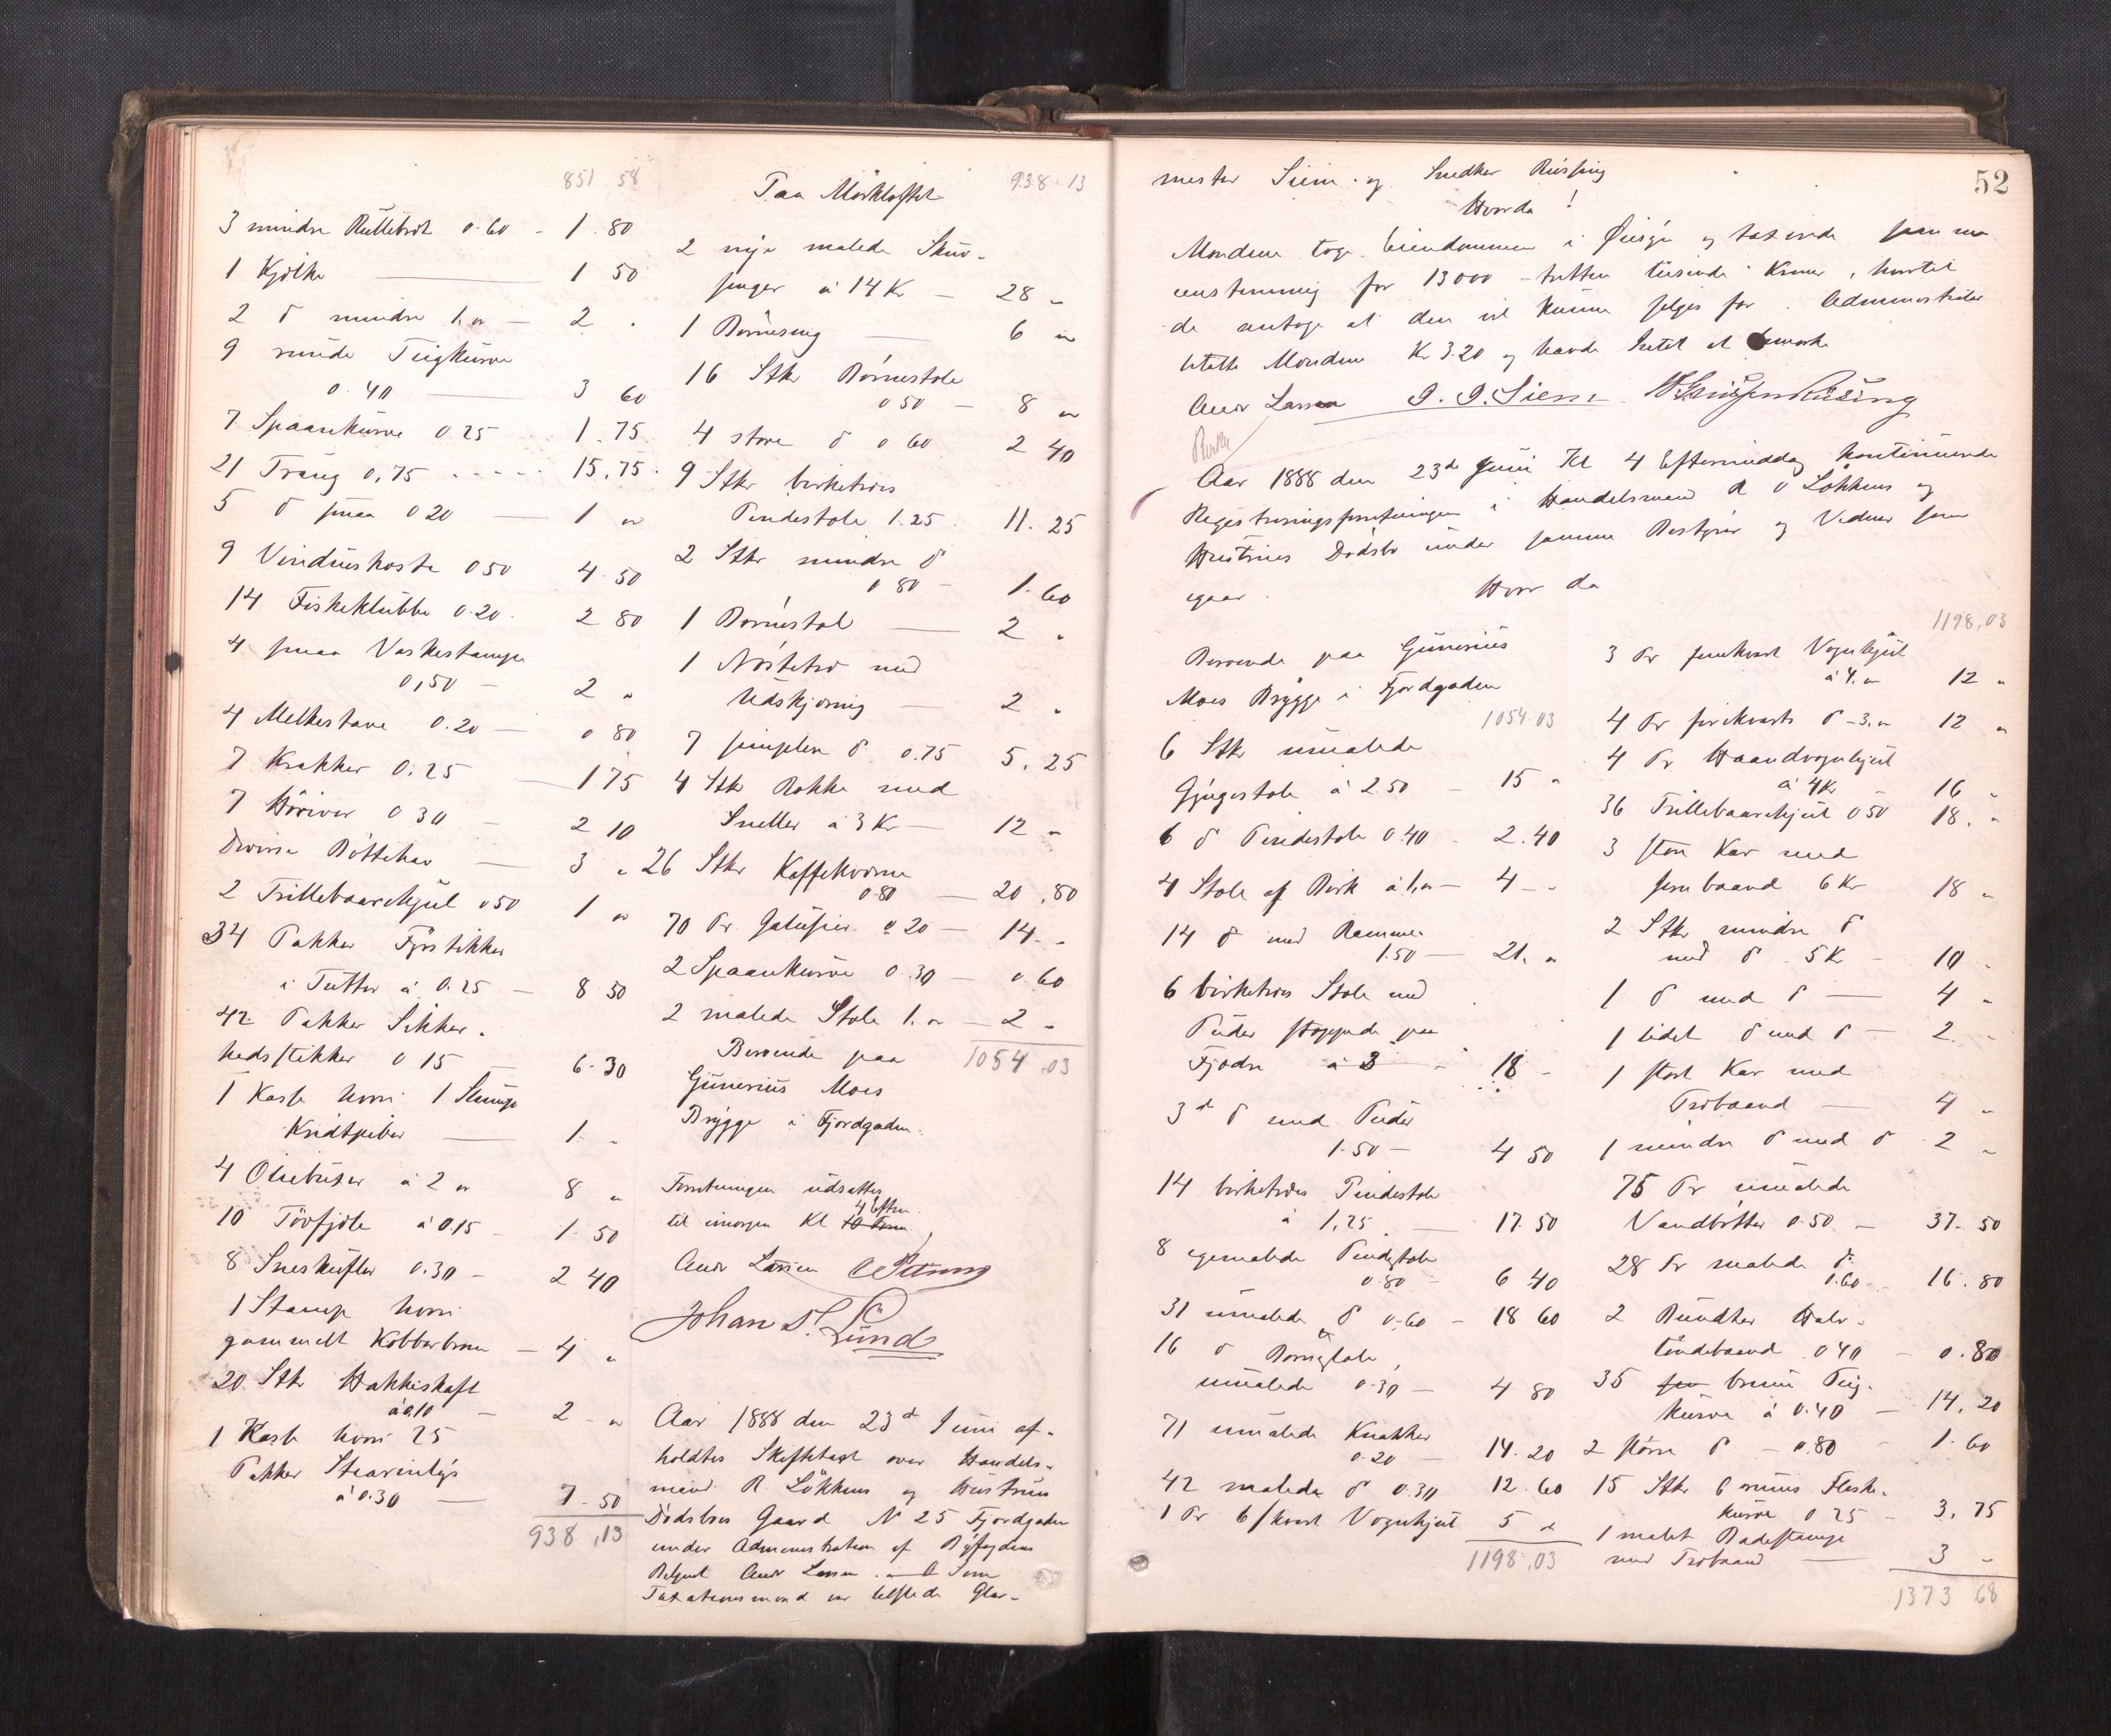 851 58
3 mindre Rullebret 0.60 - 1.80
1 Kjölke — 1 50
2 d mindre 1. „ — 2 „
9 runde Tiigkurve
0.40 — 3 60
7 Spaankurve 0.25 1.75
21 Traug 0,75 - - - - - 15,75
5 d smaa 0 20 — 1 „
9 Vinduskoste 0 50 4.50
14 Fiskeklubbe 0.20 2 80
4 smaa Vaskestampe
0,50 — 2 „
4 Melkestave 0.20 — 0 80
7 Krakker 0.25 — 1 75
7 Höriver 0 30 — 2 10
Diverse Böttehav — 3 „
2 Trillebaarehjul 0 50 1 „
34 Pakker Fyrstikker
i Tutter à 0.25 — 8 50
42 Pakker Sikker-
heds stikker 0 15 — 6.30
1 Kasse hvori 1 Stump
Kridtpiber — 1 „
4 Oliebuser à 2 „ 8 „
10 à 0,15 - 1.50
8 Sneskufler 0.30 - 2 40
1 Stamp hvori
gammelt Kobber — 4 „
20 Stk Hakkeskaft
à 0.10 — 2 „
1 Kasse hvori 25
Pakker Stearinlys
à 0.30 — 7.50
938,13
Paa Mörkloftet 938.13
2 nye malede Skuv-
senger à 14 Kr — 28 „
1 Barneseng — 6 „
16 Stk Barnestole
0 50 — 8 „
4 store d 0 60 2 40
9 Stkr birketræs
Pindestole 1.25 11.25
2 Stkr mindre d
0 80 — 1.60
1 Barnestol — 2 „
1 med
Udskjæring — 2 „
7 simplere d 0.75 5.25
4 Stk Rokke med
Sneller à 3 Kr — 12 „
26 Stkr Kaffekværne
0.80 — 20,80
70 Pr Galusier 0 20 — 14 „
2 Spaankurve 0.30 — 0.60
2 malede Stole 1. „ — 2 „
1054,03
Beroende paa
Gunerius Moes
Brygge i Fjordgaden.
Forretningen udsattes
til imorgen Kl 4 Eftm. 10 Form
Andr Larsen
Johan S. Lund
Aar 1888 den 23d Juni af-
holdtes Skiftetaxt over Handels-
mand R. Lökkens og Hustrues
Dödsbos Gaard N 25 Fjordgaden
under Administration af Byfogdens
Betjent Andr Larsen. Som
Taxationsmænd var tilstede Glar-
52
mester Siem og Snedker Rüsing
Hvorda!
Mændene tog Eiendommen i Øiesyn og taxerede som
eenstemmig for 13000 - tretten tusinde Kroner, hvortil
de antoge at den vil kunne selges for. Administrator
betalte Mændene Kr 3.20 og havde Intet at bemærke
Andr Larsen J. J. Siem Rüsing
Aar 1888 den 23de Juni Kl 4 Eftermiddag kontinuerede
Registreringsforretningen i Handelsmand R Lökkens og
Hustrues Dödsbo under samme Bestyrer og Vidner som
igaar. Hvor da
Beroende paa Gunerius
Moes Brygge i Fjordgaden
1054.03
6 Stk umalede
Gyngestole à 2.50 — 15 „
6 d Pindestole 0.40 — 2.40
4 Stole af Birk à 1. „ — 4 „
14 d med Rammer
1.50 — 21. „
6 birketræs Stole med
Puder stoppede paa
Fjædre à 3 — 18 „
3 d d med Puder
1.50 — 4 50
14 birketræs Pindestole
à 1,25 — 17.50
8 egemalede Pindestole
0.80 — 6 40
31 umalede d 0.60 — 18 60
16 d Barnestole,
umalede 0.30 — 4 80
71 umalede Krakker
0.20 — 14.20
42 malede d 0.30 12.60
1 Pr 6/kvart Vognhjul 5 „
1198,03
1198,03
3 Pr femkvart Vognhjul
à 4. „ 12 „
4 Pr firekvarts d - 3. „ 12 „
4 Pr Haandvognhjul
à 4 Kr 16 „
36 Trillebaarehjul 0 50 18. „
3 store Kar med
jernbaand 6 Kr 18 „
2 Stk mindre d
med d 5 Kr — 10 „
1 d med d — 4 „
1 lidet d med d — 2 „
1 stort Kar med
Træbaand — 4 „
1 mindre d med d 2 „
75 Pr umalede
Vandbötter 0.50 — 37.50
28 Pr malede d
0.60 — 16.80
2 Bundter Halv-
töndebaand 0 40 — 0.80
35 brune Tiig-
kurve à 0.40 — 14,20
2 större d — 0.80 — 1.60
15 Stk 6 rums Flaske-
kurve 0 25 — 3,75
1 malet Badestampe
med Træbaand — 3 „
1373 68